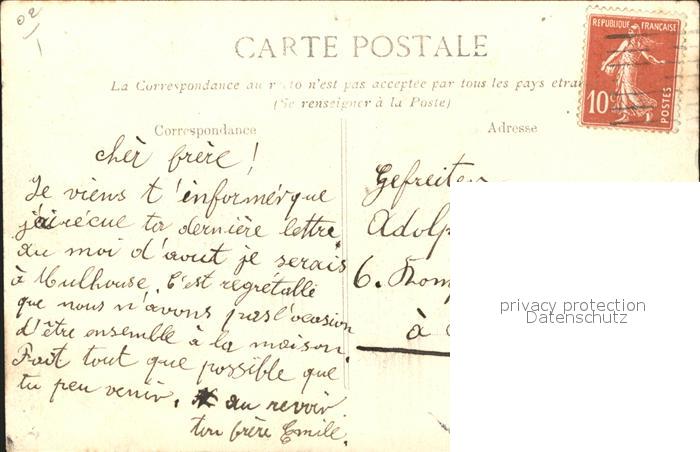 02
CARTE POSTALE
RÉPUBLIQUE FRANÇAISE
10c
POSTES
La Correspondance au recto n'est pas acceptée par tous les pays étran
(Se renseigner à la Poste)
Correspondance
Adresse
cher frère !
Je viens t'informér que
j'ai récue ta dernière lettre
au moi d'aout je serais
à Mulhouse. C'est regrétallé
que nous n'avons pas l'ocasion
d'être ensemble à la maison.
Fait tout que possible que
tu peu venir. au revoir
ton frère Emile.
Gefreiter
Adolp
6. Komp
à
privacy protection
Datenschutz